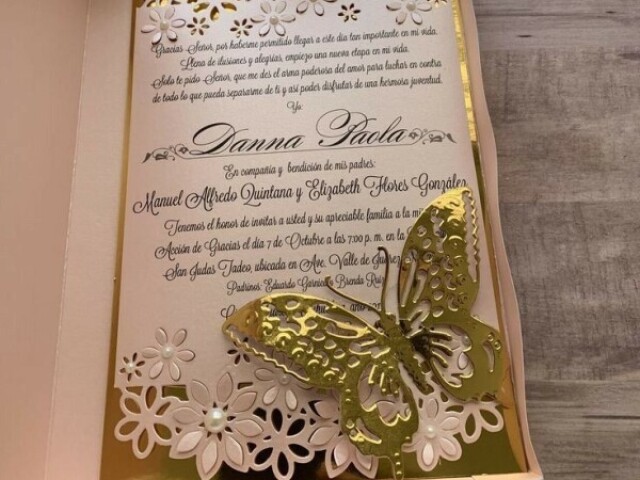 Gracias Señor, por haberme permitido llegar a este día tan importante en mi vida.
Llena de ilusiones y alegrías, empiezo una nueva etapa en mi vida.
Solo te pido Señor, que me des el arma poderosa del amor para luchar en contra
de todo lo que pueda separarme de ti y así poder disfrutar de una hermosa juventud.
Yo
Danna Paola
En compañía y bendición de mis padres:
Manuel Alfredo Quintana y Elizabeth Flores González
Tenemos el honor de invitar a usted y su apreciable familia a la
Acción de Gracias el día 7 de Octubre a las 7:00 p. m. en la
San Judas Tadeo, ubicada en Ave. Valle de Juárez
Padrinos: Eduardo García Brenda